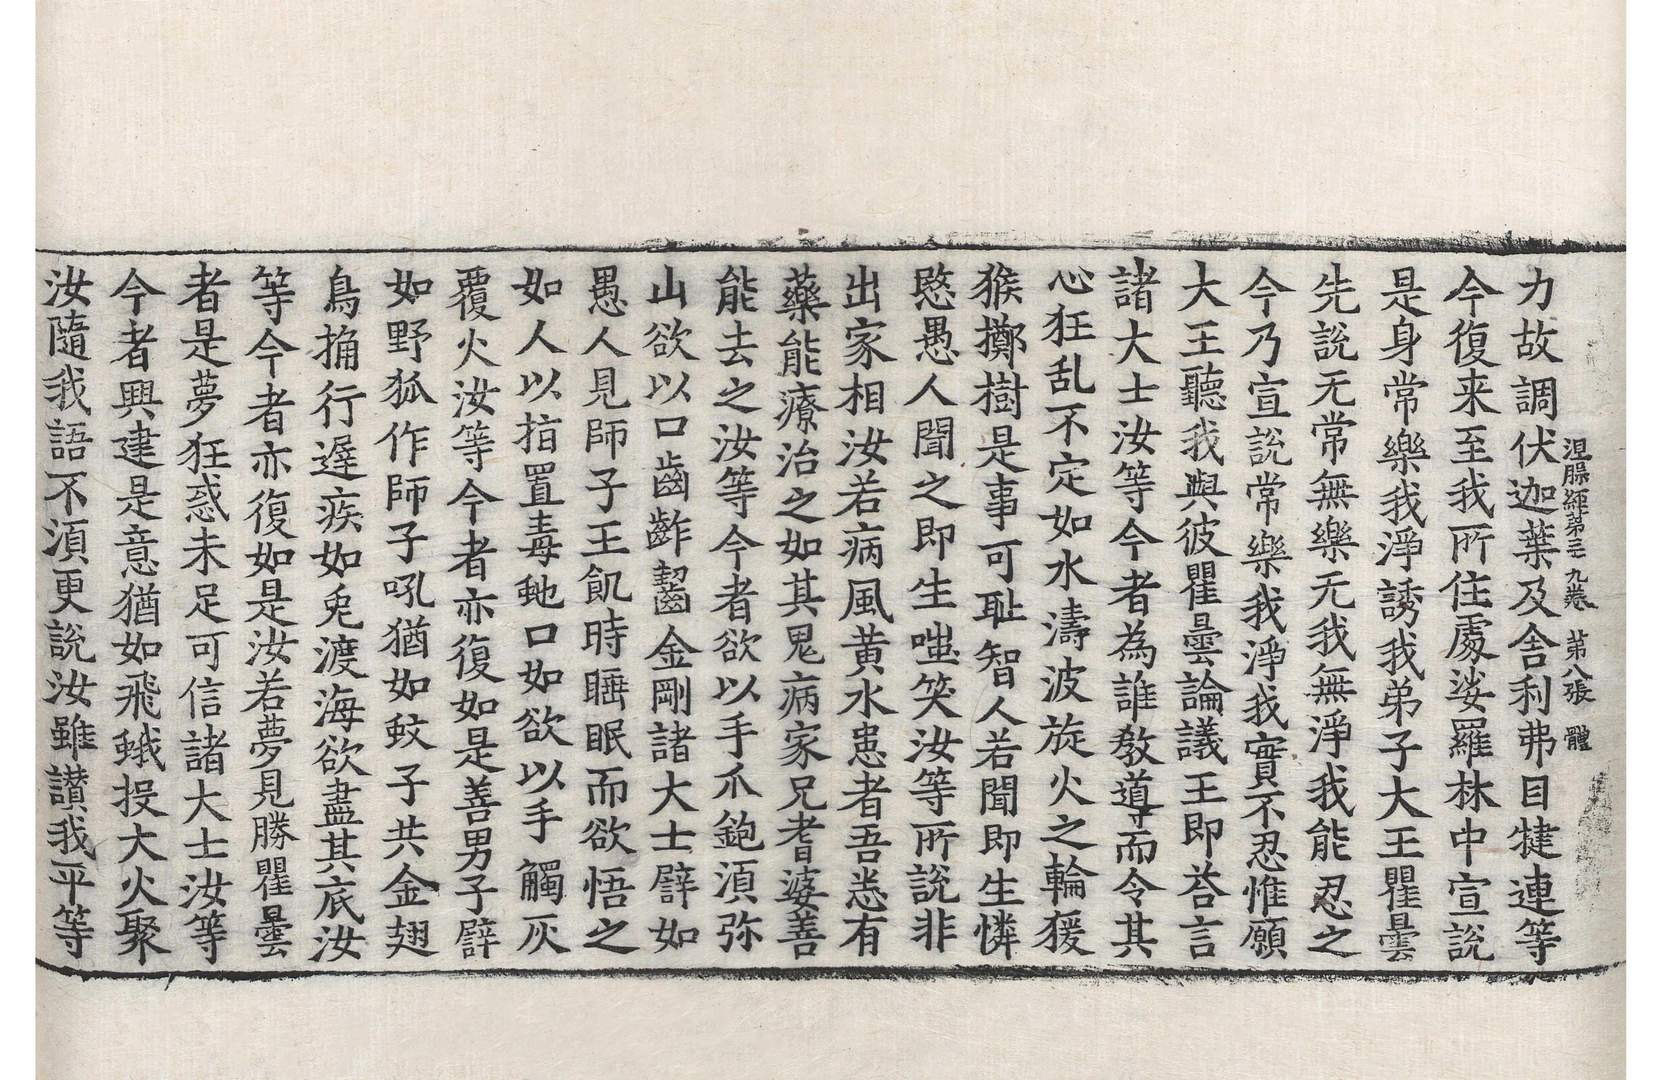 涅槃經第三九卷　第八張　體
力故調伏迦葉及舍利弗目犍連等
今復来至我所住處娑羅林中宣說
是身常樂我淨誘我弟子大王瞿曇
先說无常無樂无我無淨我能忍之
今乃宣說常樂我淨我實不忍惟願
大王聽我與彼瞿曇論議王即荅言
諸大士汝等今者為誰教導而令其
心狂乱不定如水濤波旋火之輪猨
猴擲樹是事可耻智人若聞即生憐
愍愚人聞之即生嗤笑汝等所說非
出家相汝若病風黄水患者吾悉有
藥能療治之如其鬼病家兄耆婆善
能去之汝等今者欲以手爪鉋須弥
山欲以口齒齚齧金剛諸大士譬如
愚人見師子王飢時睡眠而欲悟之
如人以指置毒虵口如欲以手觸灰
覆火汝等今者亦復如是善男子譬
如野狐作師子吼猶如蚊子共金翅
鳥捔行遲疾如兎渡海欲盡其底汝
等今者亦復如是汝若夢見勝瞿曇
者是夢狂惑未足可信諸大士汝等
今者興建是意猶如飛蛾投大火聚
汝隨我語不須更說汝雖讃我平等